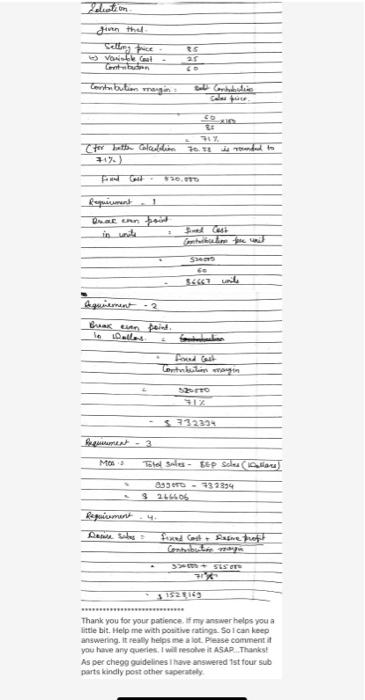 Solution.
given that.
Selling price - 85
(-) Variable Cost - 25
Contribution 60
Contribution margin : Contribution
Sales price.
60 x100
85
= 71%
(for better Calculation 70.58 is rounded to
71%)
Fixed Cost - 520,000
Requirement - 1
Break even point
in units : fixed Cost
Contribution per unit
520000
60
86667 units
Requirement - 2
Break even point.
in Dollars. =
fixed Cost
Contribution margin
520000
71%
- $ 732394
Requirement - 3
MOS : Total Sales - BEP Sales (Dollars)
- 732394
= $ 266606
Requirement - 4.
Desire Sales = fixed Cost + Desire profit
Contribution margin
520000 + 565000
71%
$ 1528169
Thank you for your patience. If my answer helps you a
little bit. Help me with positive ratings. So I can keep
answering. It really helps me a lot. Please comment if
you have any queries. I will resolve it ASAP...Thanks!
As per chegg guidelines I have answered 1st four sub
parts kindly post other saperately.